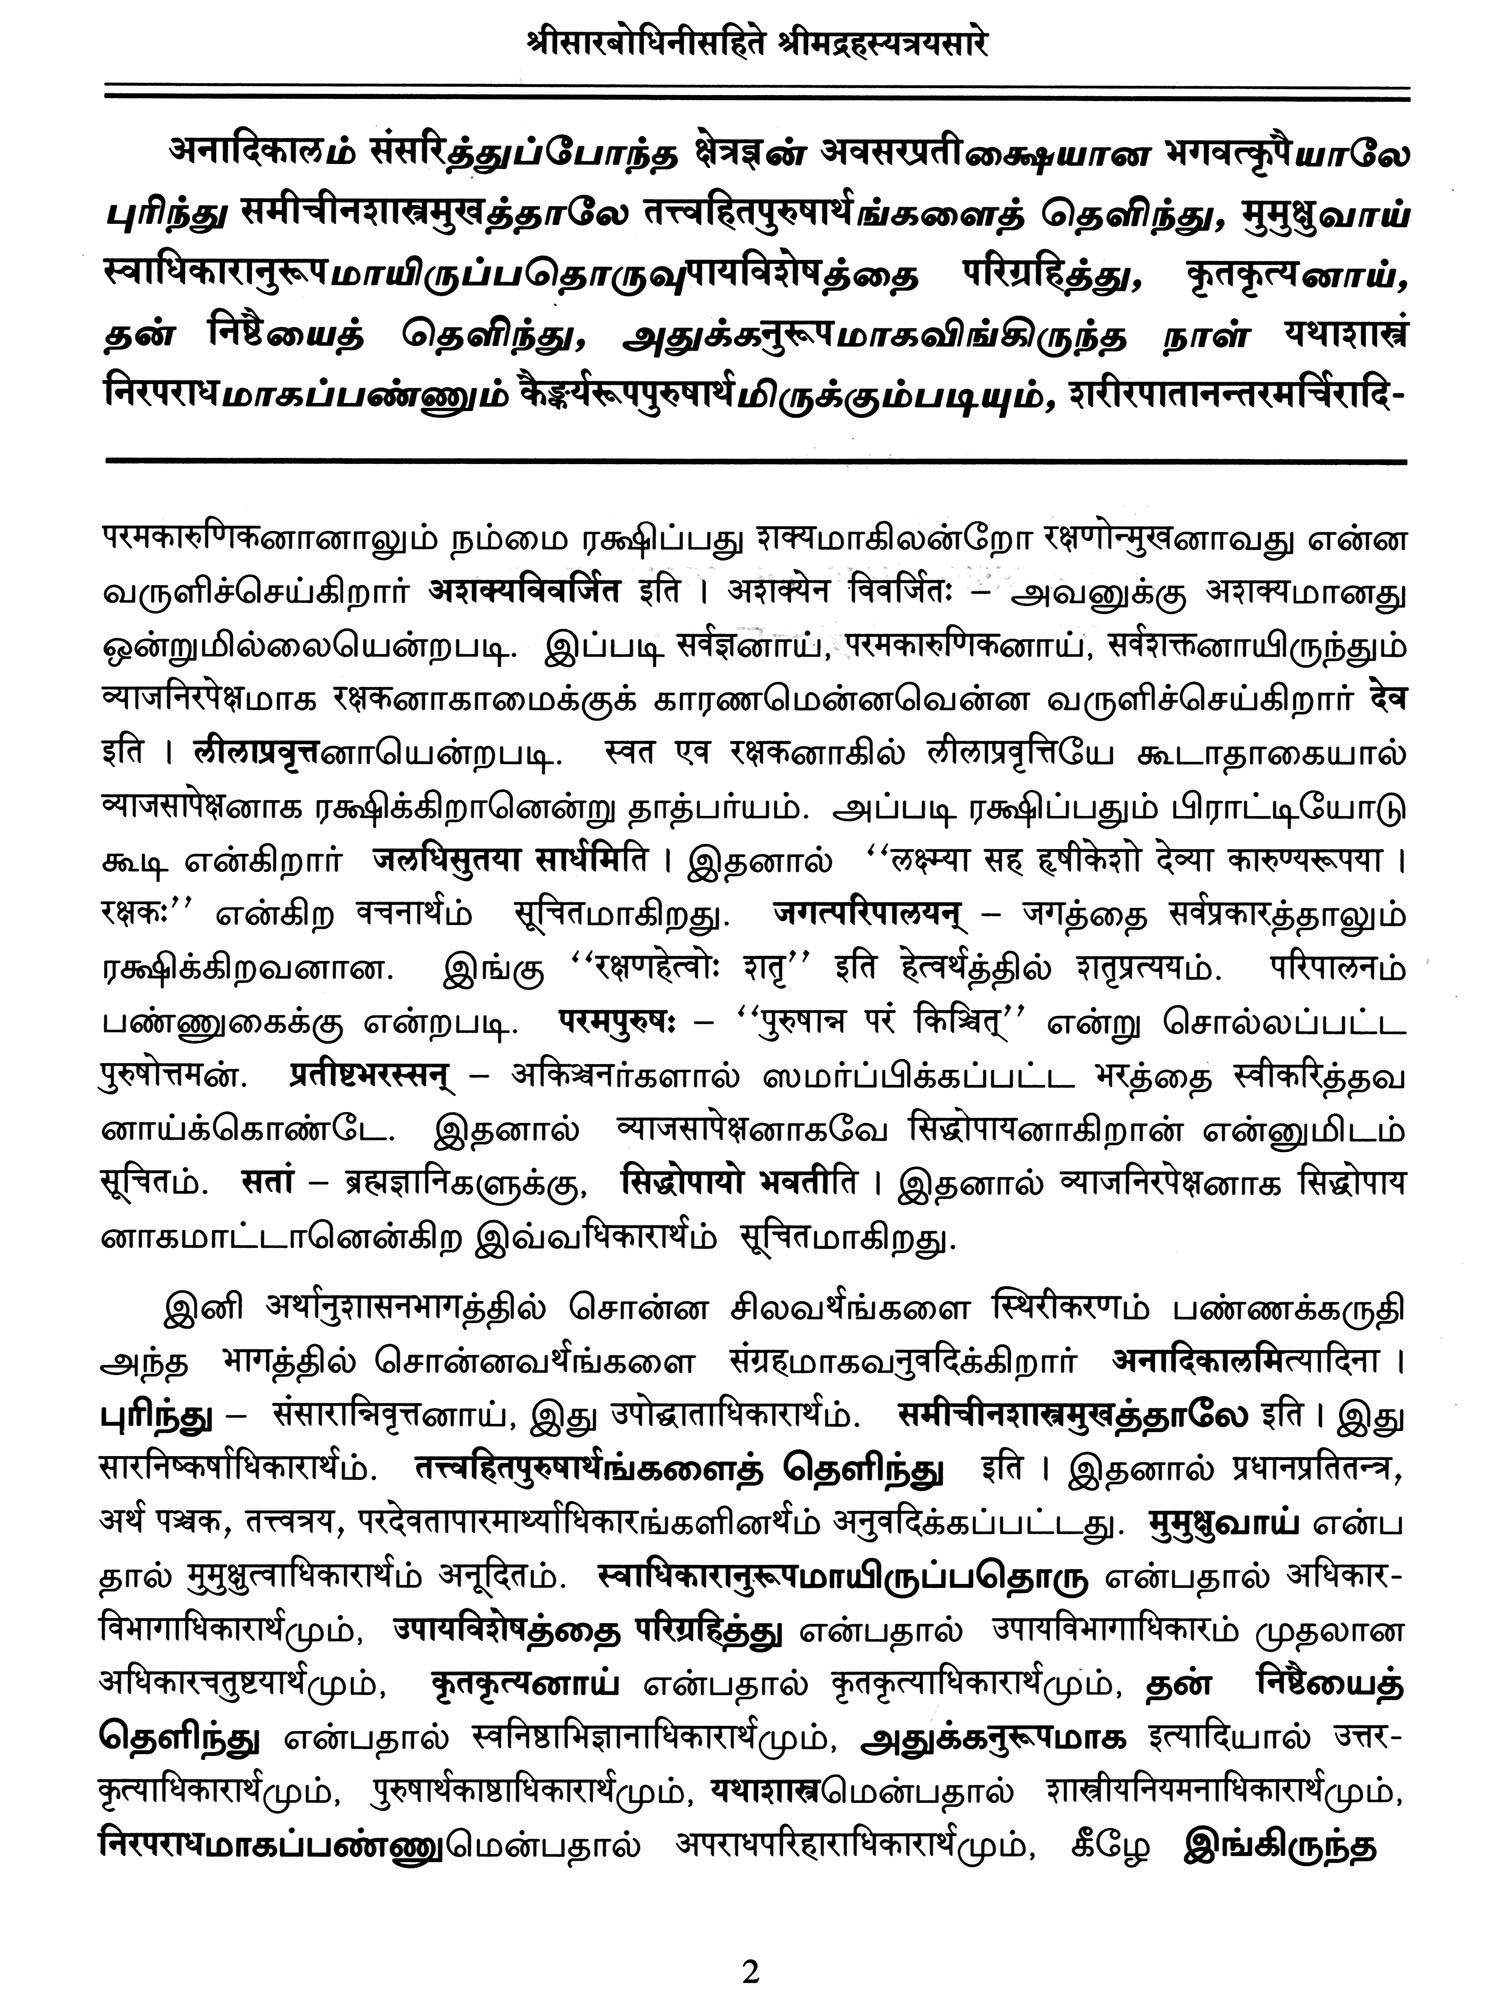 श्रीसारबोधिनीसहिते श्रीमद्रहस्यत्रयसारे
अनादिकालம் संसरिத்துப்போந்த क्षेत्रज्ञன் अवसरप्रतीக்ஷையான भगवत्कृपैயாலே
புரிந்து समीचीनशास्त्रमुखத்தாலே तत्त्वहितपुरुषार्थங்களைத் தெளிந்து, मुमुक्षुவாய்
स्वाधिकारानुरूपமாயிருப்பதொருவுपायविशेषத்தை परिग्रहिத்து, कृतकृत्यனாய்,
தன் निष्ठैயைத் தெளிந்து, அதுக்கनुरूपமாகவிங்கிருந்த நாள் यथाशास्त्रं
निरपराधமாகப்பண்ணும் कैङ्कर्यरूपपुरुषार्थமிருக்கும்படியும், शरीरपातानन्तरमर्चिरादि-
परमकारुणिकனானாலும் நம்மை ரக்ஷிப்பது शक्यமாகிலன்றோ रक्षणोन्मुखனாவது என்ன
வருளிச்செய்கிறார் अशक्यविवर्जित इति । अशक्येन विवर्जितः – அவனுக்கு अशक्यமானது
ஒன்றுமில்லையென்றபடி. இப்படி सर्वज्ञனாய், परमकारुणिकனாய், सर्वशक्तனாயிருந்தும்
व्याजनिरपेक्षமாக रक्षकனாகாமைக்குக் காரணமென்னவென்ன வருளிச்செய்கிறார் देव
इति । लीलाप्रवृत्तனாயென்றபடி. स्वत एव रक्षकனாகில் लीलाप्रवृत्तिயே கூடாதாகையால்
व्याजसापेक्षனாக ரக்ஷிக்கிறானென்று தாத்பர்யம். அப்படி ரக்ஷிப்பதும் பிராட்டியோடு
கூடி என்கிறார் जलधिसुतया सार्धमिति । இதனால் ‘‘लक्ष्म्या सह हृषीकेशो देव्या कारुण्यरूपया ।
रक्षकः’’ என்கிற वचनार्थம் सूचितமாகிறது. जगत्परिपालयन् – जगத்தை सर्वप्रकारத்தாலும்
ரக்ஷிக்கிறவனான. இங்கு ‘‘रक्षणहेत्वोः शतृ’’ इति हेत्वर्थத்தில் शतृप्रत्ययம். परिपालनம்
பண்ணுகைக்கு என்றபடி. परमपुरुषः – ‘‘पुरुषान्न परं किञ्चित्’’ என்று சொல்லப்பட்ட
पुरुषोत्तमன். प्रतीष्टभरस्सन् – अकिञ्चनர்களால் ஸமர்ப்பிக்கப்பட்ட भरத்தை स्वीकरिத்தவ
னாய்க்கொண்டே. இதனால் व्याजसापेक्षனாகவே सिद्धोपायனாகிறான் என்னுமிடம்
सूचितம். सतां – ब्रह्मज्ञानिகளுக்கு, सिद्धोपायो भवतीति । இதனால் व्याजनिरपेक्षனாக सिद्धोपाय
னாகமாட்டானென்கிற இவ்வधिकारार्थம் सूचितமாகிறது.
இனி अर्थानुशासनभागத்தில் சொன்ன சிலவर्थங்களை स्थिरीकरणம் பண்ணக்கருதி
அந்த भागத்தில் சொன்னவर्थங்களை संग्रहமாகவनुवदिக்கிறார் अनादिकालमित्यादिना ।
புரிந்து – संसारान्निवृत्तனாய், இது उपोद्घाताधिकारार्थம். समीचीनशास्त्रमुखத்தாலே इति । இது
सारनिष्कर्षाधिकारार्थம். तत्त्वहितपुरुषार्थங்களைத் தெளிந்து इति । இதனால் प्रधानप्रतितन्त्र,
अर्थ पञ्चक, तत्त्वत्रय, परदेवतापारमार्थ्याधिकारங்களினर्थம் अनुवदिக்கப்பட்டது. मुमुक्षुவாய் என்ப
தால் मुमुक्षुत्वाधिकारार्थம் अनूदितம். स्वाधिकारानुरूपமாயிருப்பதொரு என்பதால் अधिकार-
विभागाधिकारार्थமும், उपायविशेषத்தை परिग्रहिத்து என்பதால் उपायविभागाधिकारம் முதலான
अधिकारचतुष्टयार्थமும், कृतकृत्यனாய் என்பதால் कृतकृत्याधिकारार्थமும், தன் निष्ठैயைத்
தெளிந்து என்பதால் स्वनिष्ठाभिज्ञानाधिकारार्थமும், அதுக்கनुरूपமாக इत्यादिயால் उत्तर-
कृत्याधिकारार्थமும், पुरुषार्थकाष्ठाधिकारार्थமும், यथाशास्त्रமென்பதால் शास्त्रीयनियमनाधिकारार्थமும்,
निरपराधமாகப்பண்ணுமென்பதால் अपराधपरिहाराधिकारार्थமும், கீழே இங்கிருந்த
2